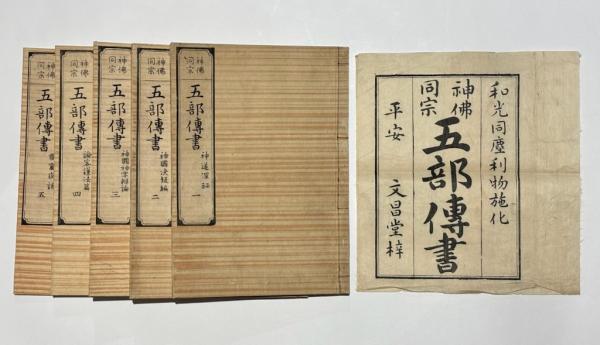 和光同塵利物施化
神佛
同宗
五部傳書
平安 文昌堂梓
神佛
同宗
五部傳書
神道深祕 一
神佛
同宗
五部傳書
神國決疑編 二
神佛
同宗
五部傳書
神國神字辯論 三
神佛
同宗
五部傳書
護法 四
神佛
同宗
五部傳書
五